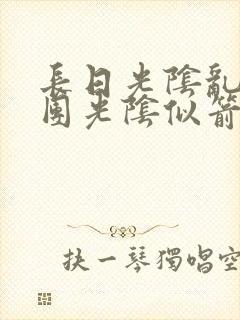 長日光陰亂
團光陰似箭
抉一琴獨唱空